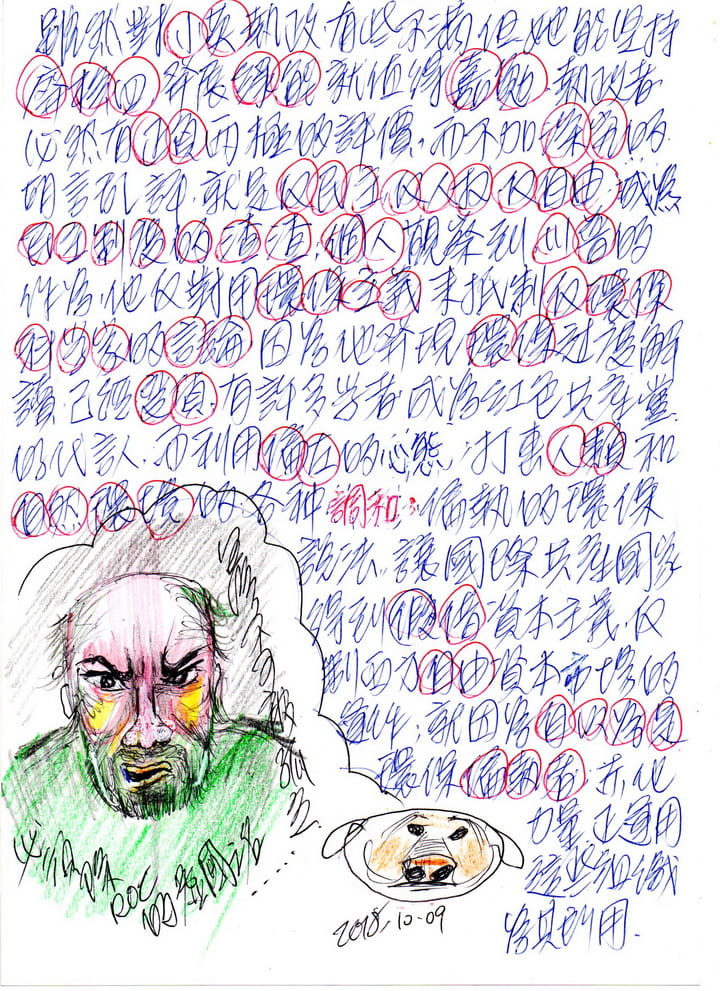 雖然對小英執政有些不滿但她能堅持
廢核四發展綠能就值得嘉勉、執政者
必然有正負兩極的評價,而不加深究的
胡言乱評,就是反民主反人权反自由,成為
民主制度的渣渣,個人觀察到川普的
作為,他反對用環保主義來抵制反環保
的言論因為他發現環保过度解
讀已經,有許多学者成為紅色共產黨
的代言人,而利用偏左的心態,打击人類和
自然環境的各種調和:偏執的環保
說法,讓國際共產國家
得到假借資本主義,反
制西方自由資本市場的
運作,就因為自以為是
環保偏執者,赤化
力量正運用
這些組織
為其所用.
ROC
2018.10.09